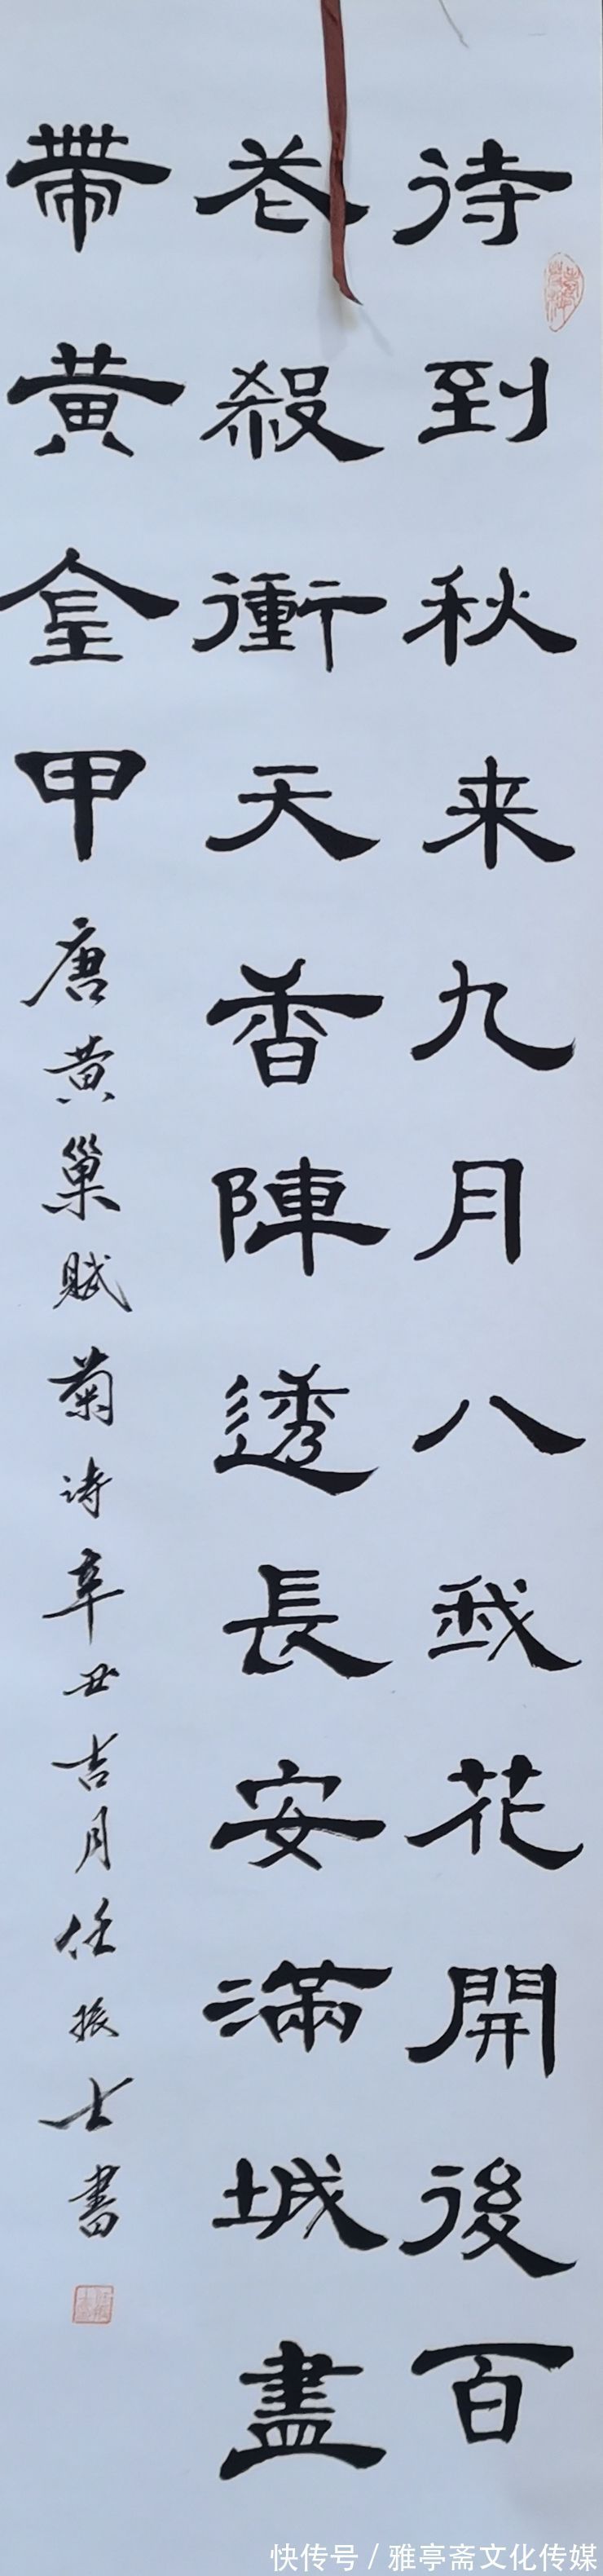 待到秋来九月八我花開後百
花殺衝天香陣透長安滿城盡
帶黄金甲唐黄巢賦菊诗辛丑吉月任振士書
快传号 / 雅亭斋文化传媒